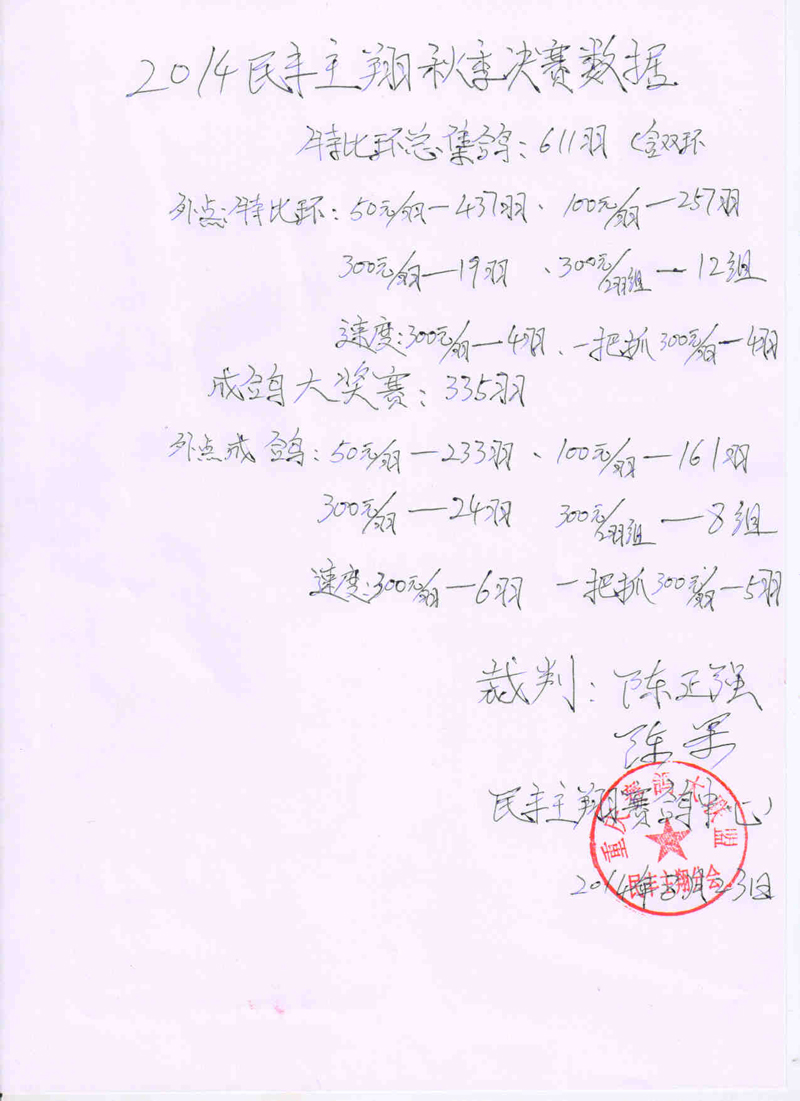 2014民丰主翔秋季决赛数据
特比环总集鸽:611羽(含双环
外点:特比环:50元/羽—437羽、100元/羽—257羽
300元/羽—19羽、300元/2羽组—12组
速度:300元/羽—4羽、一把抓300元/羽—4羽
成鸽大奖赛:335羽
外点成鸽:50元/羽—233羽、100元/羽—161羽
300元/羽—24羽 300元/2羽组—8组
速度:300元/羽—6羽 一把抓300元/羽—5羽
裁判:陈正强
陈
民丰主翔赛鸽中心
重庆赛鸽大联盟
民丰主翔分会
2014年 月23日